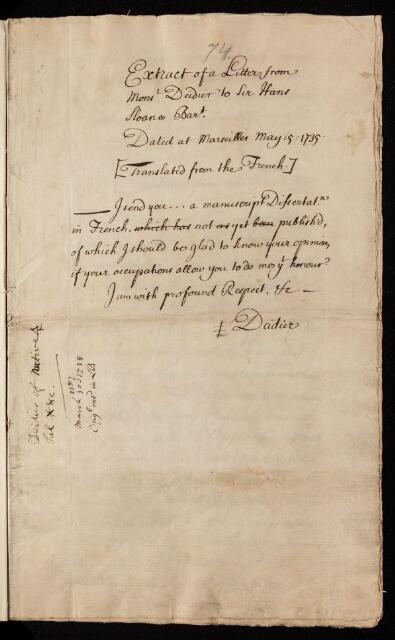 74
Extract of a Letter from
Monsr. Deidier to Sir Hans
Sloane Bart.
Dated at Marseilles May: 5. 1735.
[Translated from the French.]
I send you... a manuscript Dissertatn.
in French, which has not as yet been publish'd,
of which I should be glad to know your opinion,
if your occupations allow you to do me ye. honour
I am with profound Respect, &c —
Deidier
March 30. 1738